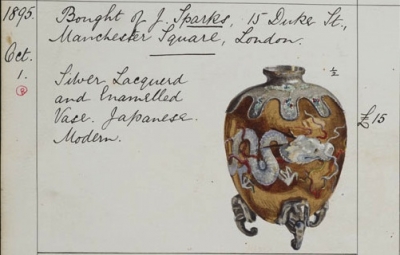 1895.
Bought of J. Sparks, 15 Duke St.,
Manchester Square, London.
Oct.
1.
Silver, Lacquerd
and Enamelled
Vase. Japanese.
Modern.
½
£15